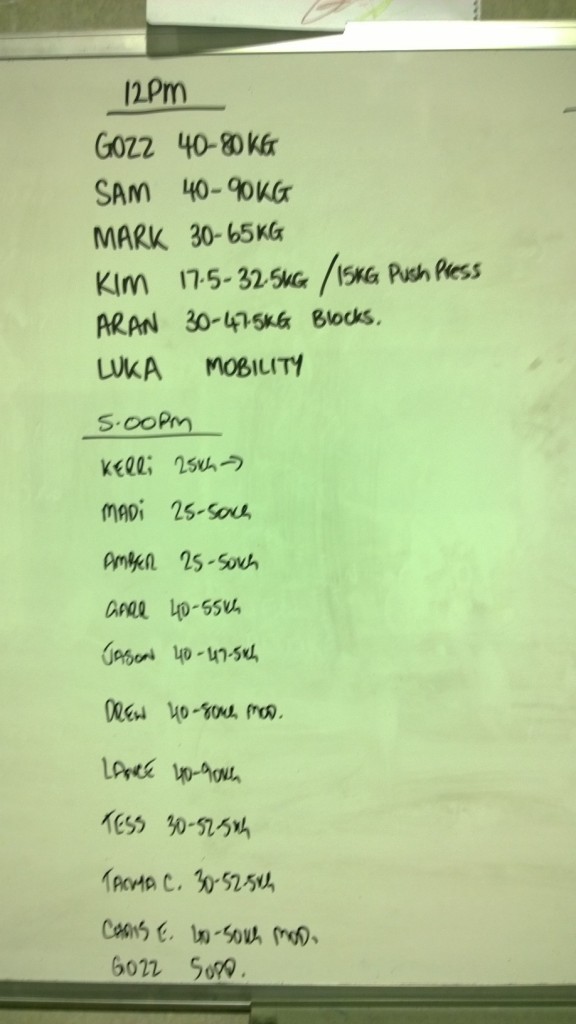 12PM
GOZZ 40-80KG
SAM 40-90KG
MARK 30-65KG
KIM 17.5-32.5KG /15KG Push Press
ARAN 30-47.5KG Blocks.
LUKA MOBILITY
5.00PM
KERRi 25KG→
MADi 25-50KG
AMBER 25-50KG
40-55KG
JASON 40-47.5KG
DREW 40-80KG MOD.
LANCE 40-90KG
TESS 30-52.5KG
C. 30-52.5KG
CHRIS E. 40-50KG MOD.
GOZZ